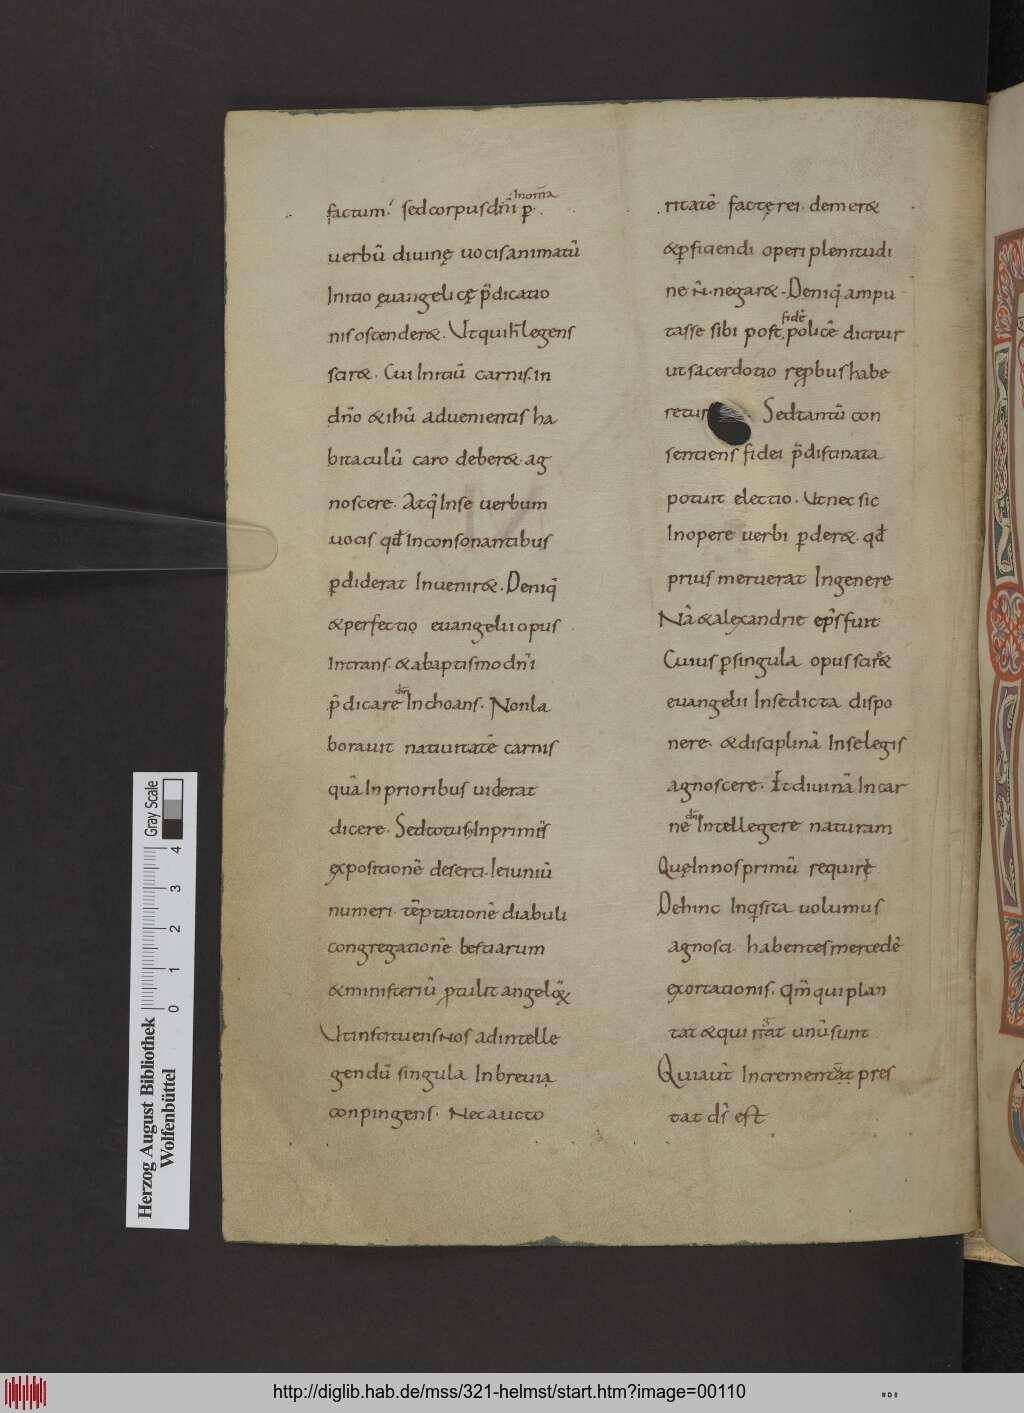 factum. sed corpus dñi ꝑ. In om̄a
uerbū diuinę uocis animatū
Initio ęuangelicę p̄dicatio
nis ostender&. Ut qui h̄ legens
scir&. Cui Initiū carnis. in
dño & ihū aduenientis ha
bitaculū caro deber& ag
noscere. Atq; In se uerbum
uocis qđ In consonantibus
ꝑdiderat Inuenir&. Deniq;
& perfectio euangelii opus
Intrans. & a baptismo dñi
p̄dicare dm̄ Inchoans. Non la
borauit natiuitatē carnis
quā In prioribus uiderat
dicere. Sed totus In primis
expositionē deserti. Ieiuniū
numeri. tēptationē diabuli
congregationē bestiarum
& ministeriū ꝓtulit angeloꝝ
Ut instituens nos ad intelle
gendū singula In breuia
conpingens. Nec aucto
ritatē factę rei demer&
& ꝑficiendi operi plenitudi
ne n̄ negar&. Deniq; ampu
tasse sibi post fidē police dicitur
ut sacerdotio reprobus habe
retur. Sed tantū con
sentiens fidei p̄distinata
potuit electio. Ut nec sic
In opere uerbi ꝑder&. qđ
prius meruerat In genere
Nā & alexandrie ep̄s fuit
Cuius ꝑ singula opus scir&
euangelii In se dicta dispo
nere. & disciplinā In se legis
agnoscere. Et diuinā In car
ne dn̄i Intellegere naturam
Quę In nos primū requiri
Dehinc Inqsita uolumus
agnosci. habentes mercedē
exortationis. Qm̄ qui plan
tat & qui rigat unū sunt
Qui aut Incrementū pres
tat ds̄ est
Herzog August Bibliothek
Wolfenbüttel
0 1 2 3 4
Gray Scale
http://diglib.hab.de/mss/321-helmst/start.htm?image=00110